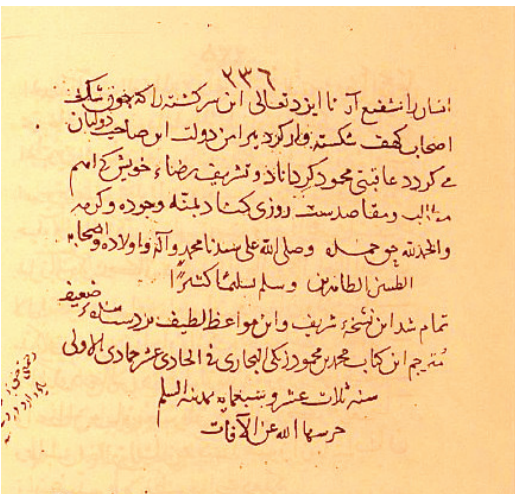 ۲۳۶
ایشان را شفیع آرد تا ایزد تعالی این سرگشته را که بخوف سگی
اصحاب کهف شکسته وار گرد پیرامن دولت این صاحب دولتان
می گردد عاقبتی محمود گرداناد و تشریف رضاء خویش که اهم
مطالب و مقاصدست روزی کناد بمنه وجوده وکرمه
والحمد لله حق حمده وصلی الله علی سیدنا محمد وآله واولاده واصحابه
الطیبین الطاهرین وسلم تسلیما کثیرا
تمام شد این نسخهٔ شریف و این مواعظ لطیف بر دست بندهٔ ضعیف
مترجم این کتاب محمد بن محمود زنگی البخاری فی الحادی عشر جمادی الاولی
سنه ثلاث عشر و سبعمایه بمدینه السلم
حرسها الله عن الآفات